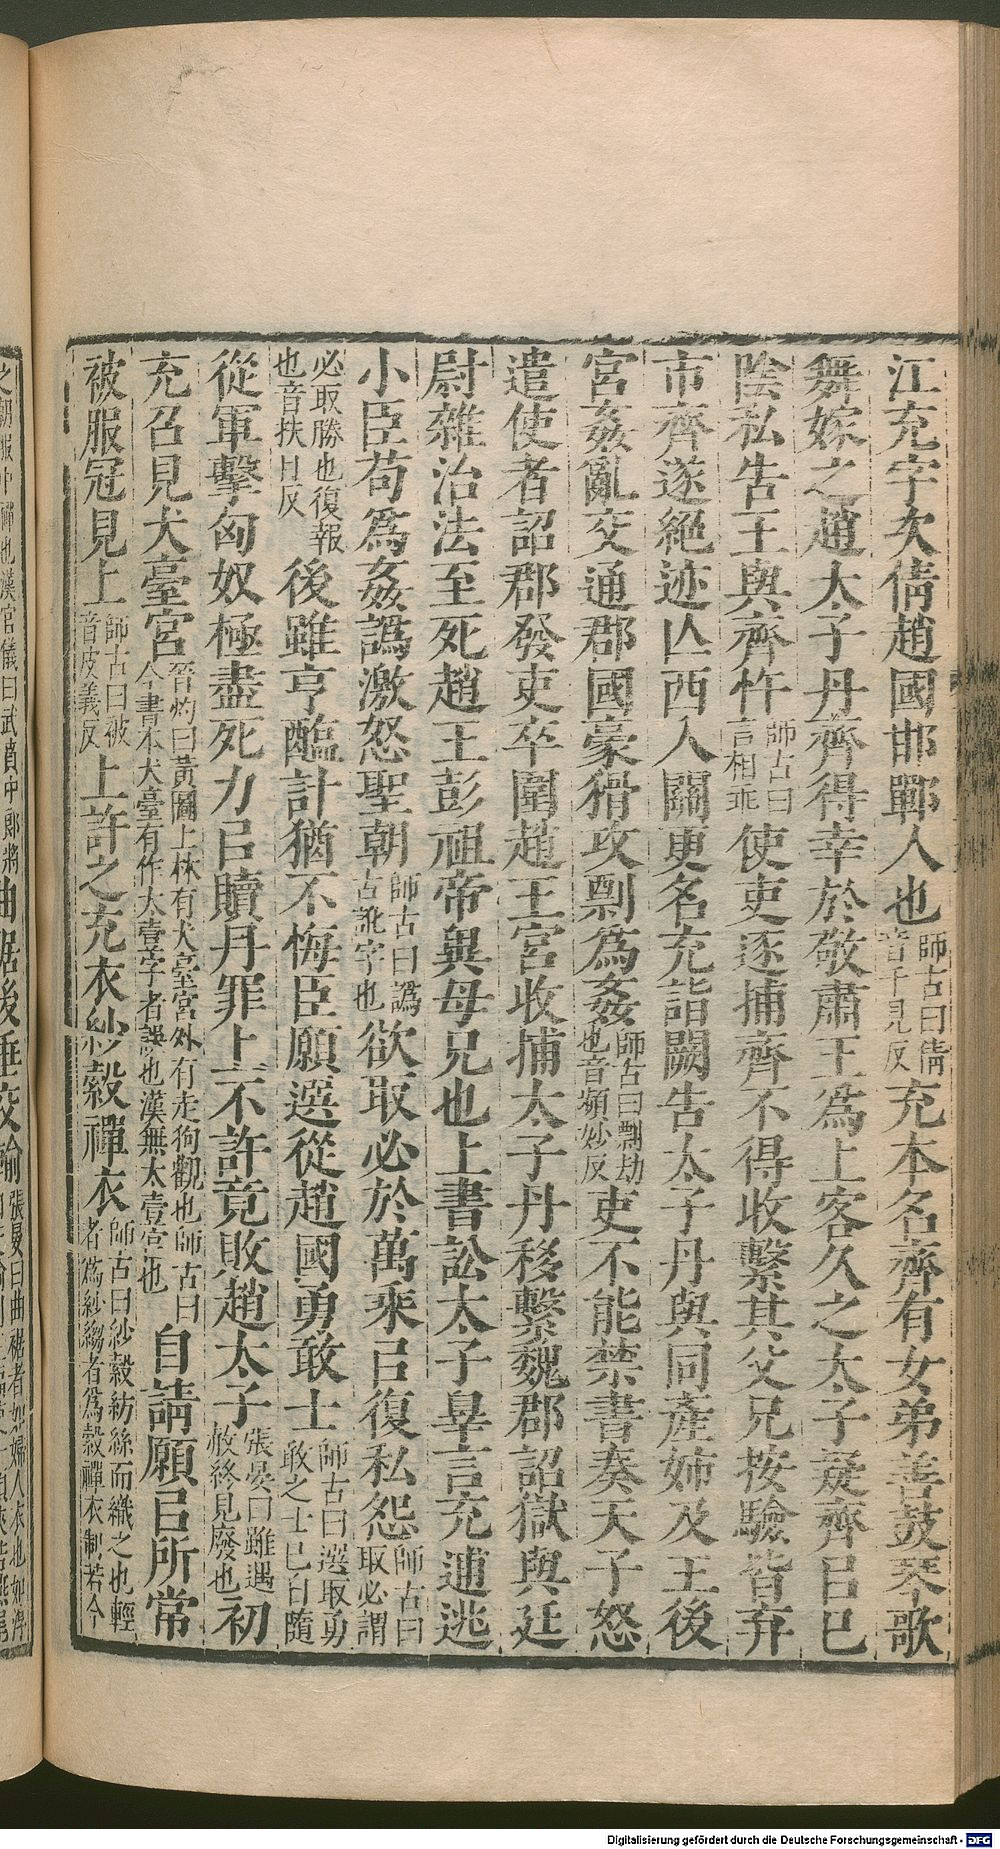 江充字次倩趙國邯鄲人也師古曰倩音千見反充本名齊有女弟善鼓琴歌
舞嫁之趙太子丹齊得幸於敬肅王爲上客久之太子疑齊㠯已
陰私告王與齊忤師古曰言相乖使吏逐捕齊不得收繫其父兄按驗皆弃
市齊遂絕迹亾西入關更名充詣闕告太子丹與同產姉及王後
宮姦亂交通郡國豪猾攻剽爲姦師古曰剽劫也音頻妙反吏不能禁書奏天子怒
遣使者詔郡發吏卒圍趙王宮收捕太子丹移繫魏郡詔獄與廷
尉雜治法至死趙王彭祖帝異母兄也上書訟太子辠言充逋逃
小臣苟爲姦譌激怒聖朝師古曰譌古訛字也欲取必於萬乘㠯復私怨師古曰取必謂
必取勝也復報也音扶目反後雖亨醢計猶不悔臣願選從趙國勇敢士師古曰選取勇敢之士已自隨
從軍擊匈奴極盡死力㠯贖丹罪上不許竟敗趙太子張晏曰雖遇赦終見廢也初
充召見犬臺宮晉灼曰黃圖上林有犬臺宮外有走狗觀也師古曰今書本犬臺有作大壹字者誤也漢無太壹宮也自請願㠯所常
被服冠見上師古曰被音皮義反上許之充衣紗縠禪衣師古曰紗縠紡絲而織之也輕者爲紗縐者爲縠禪衣制若今
之朝服中禪也漢官儀曰武賁中郎將曲裾後垂交輸張晏曰曲裾者如婦人衣也如淳
Digitalisierung gefördert durch die Deutsche Forschungsgemeinschaft - DFG